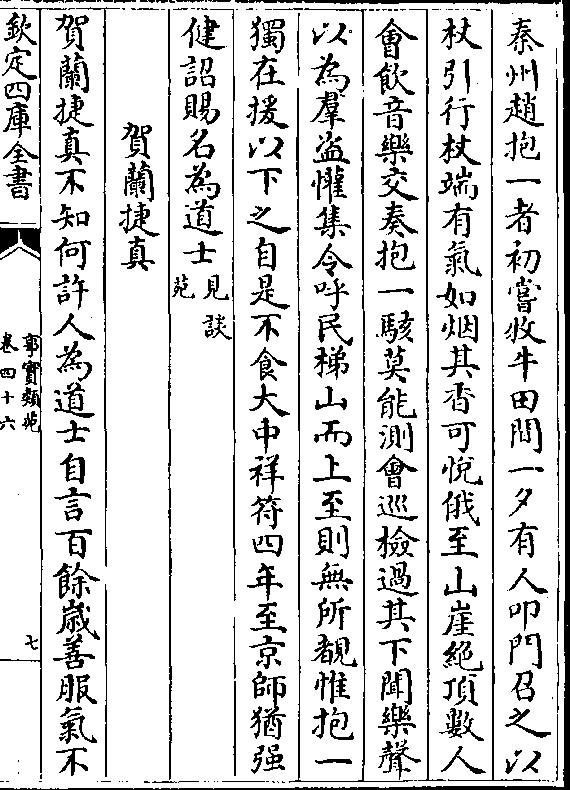 秦州趙抱一者初嘗牧牛田間一夕有人叩門召之以
杖引行杖端有氣如烟其香可悅俄至山崖絶頂數人
會飲音樂交奏抱一駭莫能測會巡檢過其下聞樂聲
以為羣盜懽集令呼民梯山而上至則無所覩惟抱一
獨在援以下之自是不食大中祥符四年至京師猶强
健詔賜名為道士見談苑
賀蘭捷真
賀蘭捷真不知何許人為道士自言百餘歲善服氣不
欽定四庫全書
事實類苑
卷四十六
七